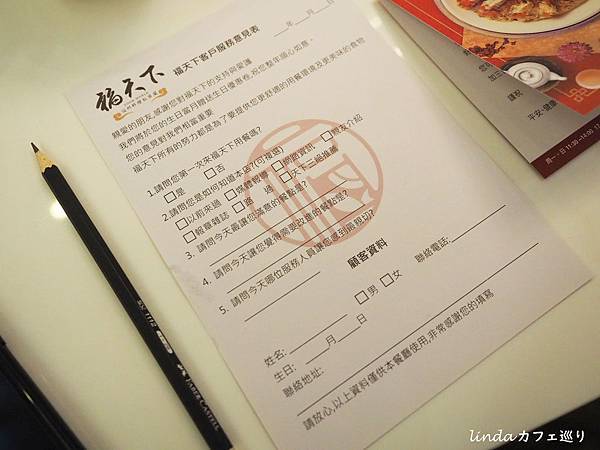 福天下
福天下客戶服務意見表
__年__月__日
親愛的朋友,感謝您對福天下的支持與愛護
我們將於您的生日當月贈送生日優惠卷,祝您整年順心如意。
您的意見對我們相當重要
福天下所有的努力都是為了要提供您更舒適的用餐環境及更美味的食物
1.請問您第一次來福天下用餐嗎?
□是 □否
2.請問您是如何知道本店?(可複選)
□以前來過 □媒體報導 □網路資訊 □親友介紹
□報章雜誌 □路 過 □天下三絕推薦
3. 請問今天最讓您滿意的餐點是?
4. 請問今天讓您覺得需要改進的餐點是?
5. 請問今天哪位服務人員讓您感到最親切?
顧客資料
姓名: □男 □女 聯絡電話:
生日: __月__日
聯絡地址:
請放心,以上資料僅供本餐廳使用,非常感謝您的填寫
謹祝
平安·健康
FABER-CASTELL
lindaカフェ巡り